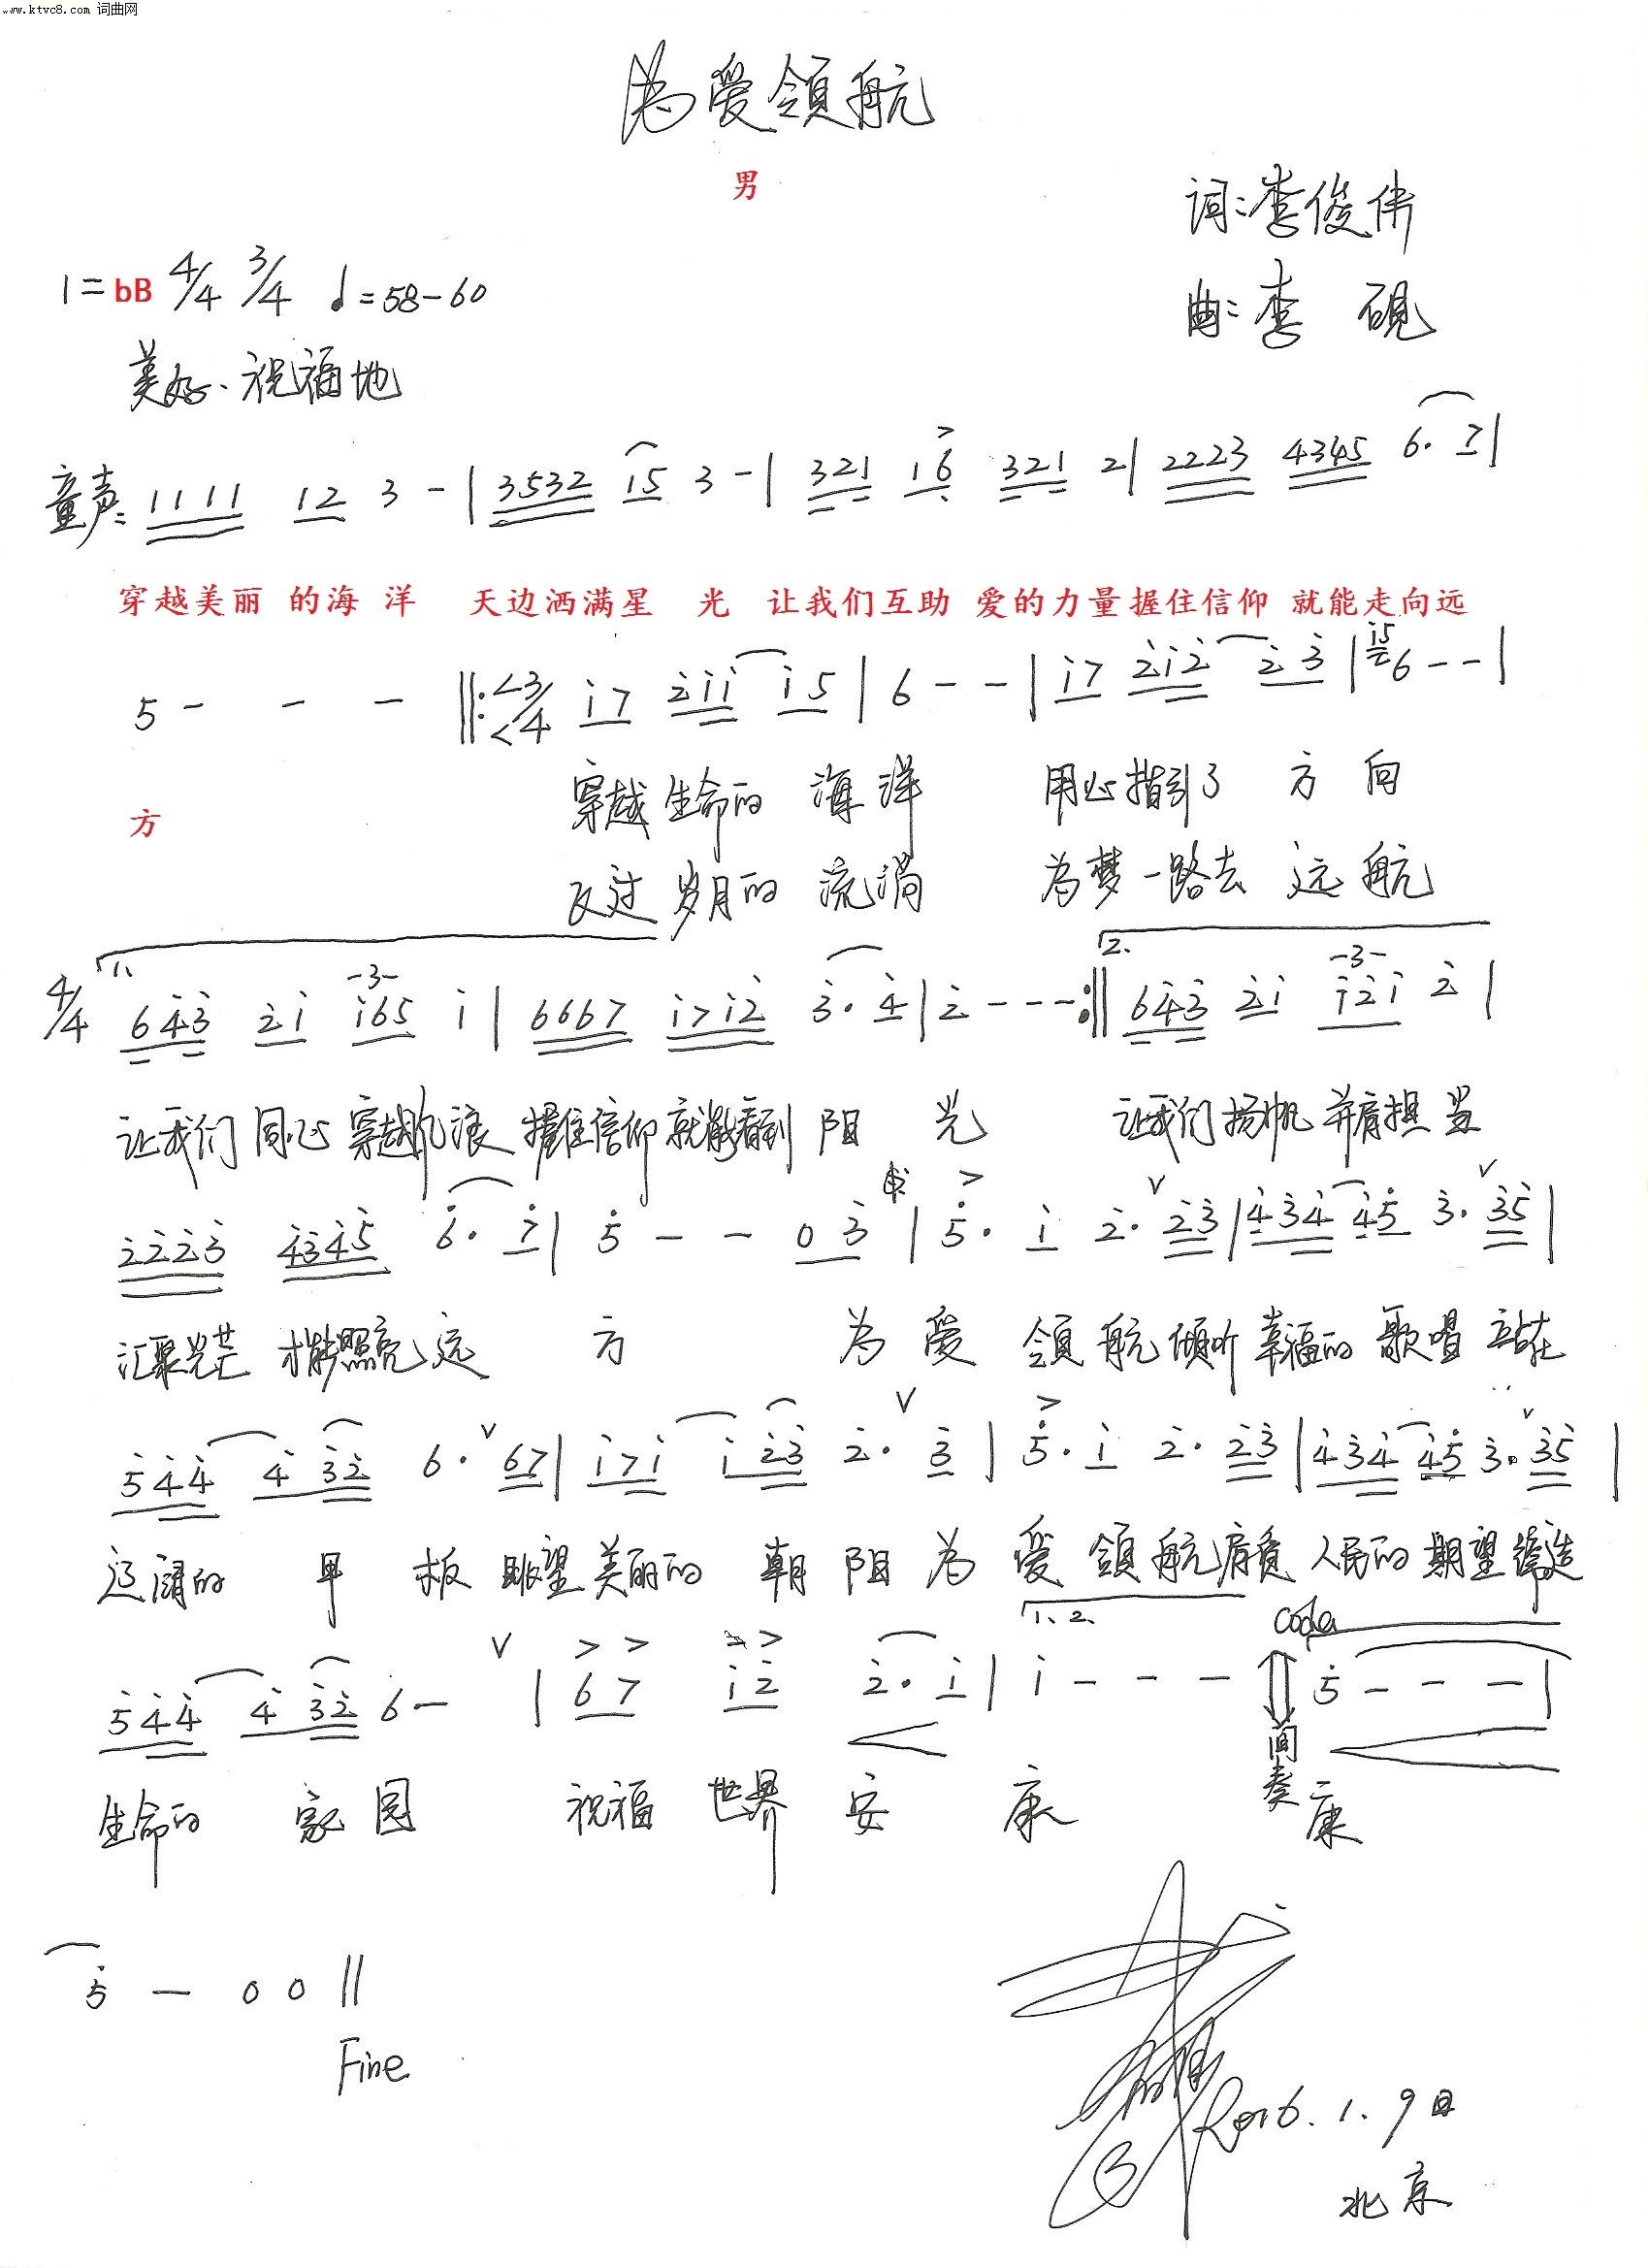 www.ktvc8.com 词曲网
为爱领航
男
词:李俊伟
1=bB 4/4 3/4 ♩=58-60
曲:李 砚
美好.祝福地
童声: 1111 12 3 - | 3532 i5 3 - | 321 16 321 2 | 2223 4345 6. 7 |
穿越美丽 的海 洋 天边洒满星 光 让我们互助 爱的力量握住信仰 就能走向远
5 - - - ‖: <3/4 i7 2ii i5 | 6 - - | i7 2i2 2 3 | i5 6 - - |
穿越生命的 海洋 用心指引了 方 向
方
岁月的 流淌 为梦一路去 远 航
1. 2.
4/4 643 2i -3- i65 i | 6667 i7i2 3. 4 | 2 - - - :‖ 643 2i -3- i2i 2 |
让我们同心 穿越风浪 握住信仰就能看到 阳 光 让我们扬帆 并肩担当
2223 4345 6. 7 | 5 - - 0 3 | 5. i 2. 23 | 434 45 3. 35 |
汇聚光芒 才能照亮远 方 为 爱 领 航倾听 幸福的 歌唱 站在
544 4 32 6. 67 | i7i i 23 2. 3 | 5. i 2. 23 | 434 45 3. 35 |
辽阔的 甲 板 眺望美丽的 朝 阳 为 爱 领航肩负 人民的 期望 缔造
1、2. coda
544 4 32 6 - | 67 i2 2. i | i - - - 5 - - - |
间奏
生命的 家园 祝福 世界 安 康 康
5 - 0 0 ‖
Fine
2016.1.9日
北京